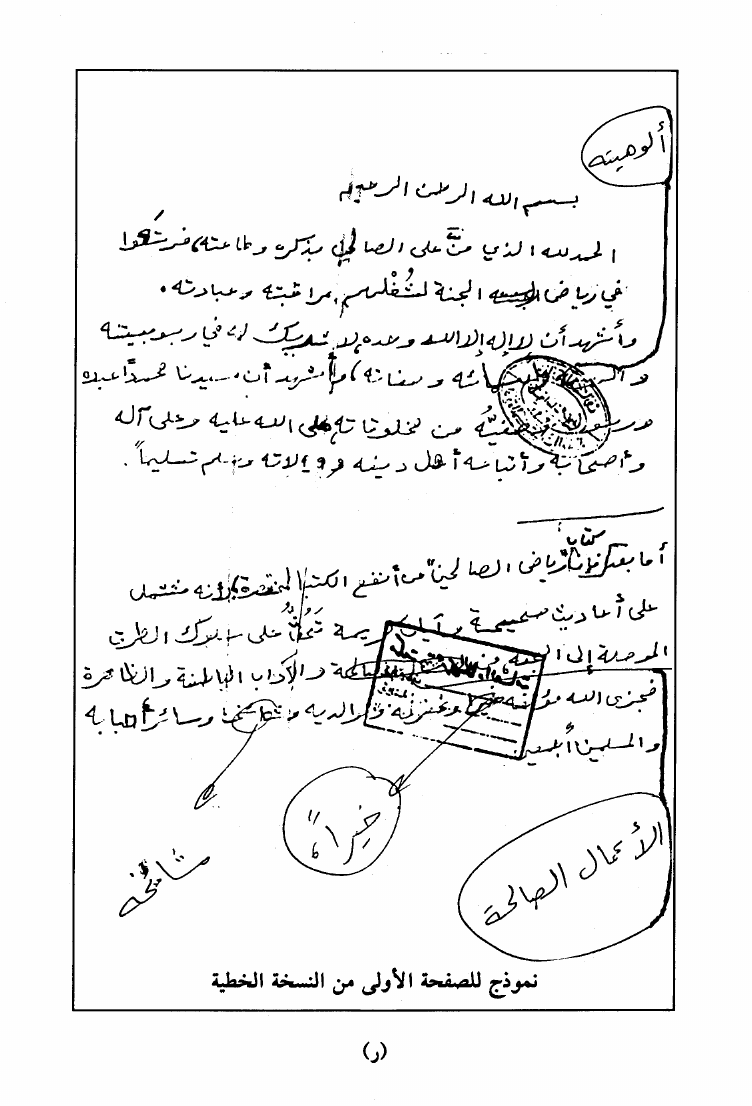 ألوهيته
بسم الله الرحمن الرحيم
الحمد لله الذي منَّ على الصالحين بذكره وطاعته، فرتعُوا
في رياض الجنة لشُغْلهم بمراقبته وعبادته.
وأشهد أن لا إله إلا الله وحده لا شريك له في ربوبيته
وصفاته، وأشهد أن سيدنا محمداً عبده
وصفيُّه من مخلوقاته صلى الله عليه وعلى آله
وأصحابه وأتباعه أهل دينه و ولاته وسلم تسليماً.
كتاب
أما بعد فإن "رياض الصالحين" من أنفع الكتب المختصرة، لأنه مشتمل
على أحاديث صحيحة وآيات كريمة تَحُثُّ على سلوك الطرق
الموصلة إلى والآداب الباطنة والظاهرة
فجزى الله مؤلفه خيراً وغفر له ولوالديه ومشائخه وسائر أحبابه
والمسلمين أجمعين
خيراً
مشائخه
الأعمال الصالحة
نموذج للصفحة الأولى من النسخة الخطية
(ر)